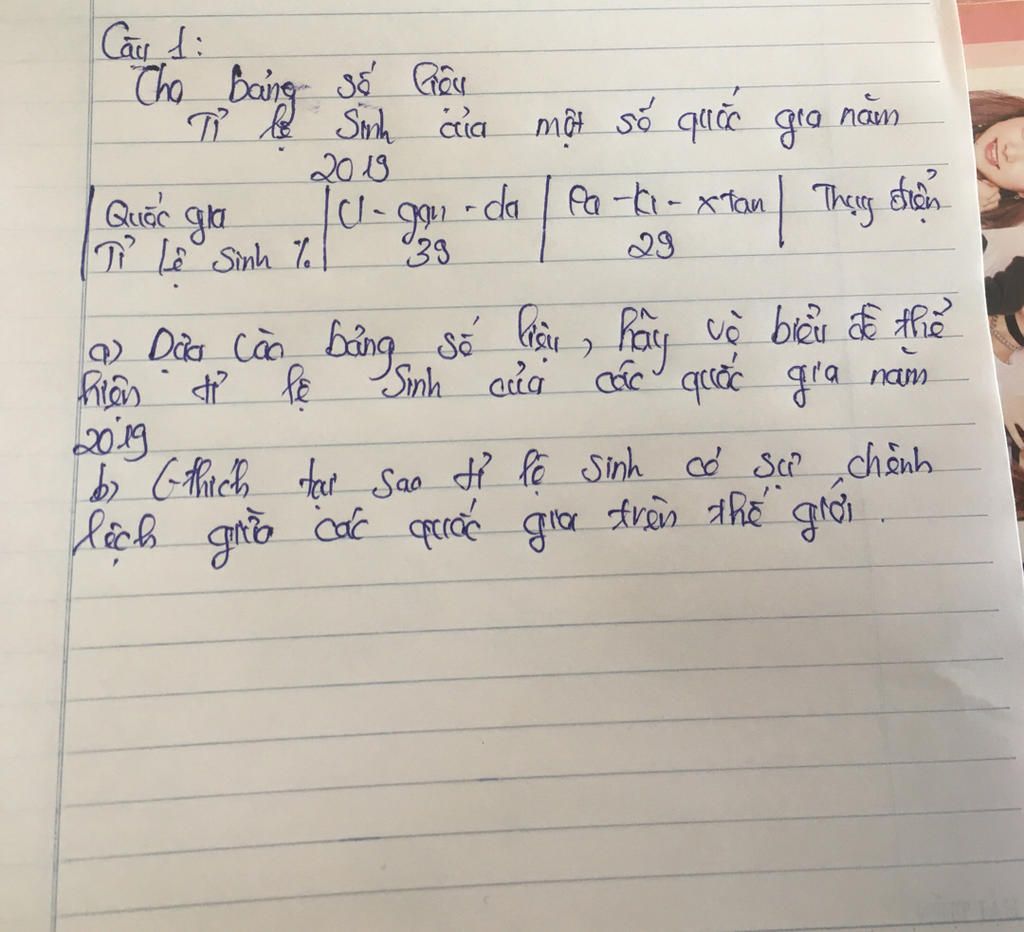 Câu 1:
Cho bảng số liệu
Tỉ lệ sinh của một số quốc gia năm
2019
Quốc gia | U-gan-da | Pa-ki-xtan | Thụy điển
Tỉ lệ sinh % | 39 | 29
a) Dựa vào bảng số liệu, hãy vẽ biểu đồ thể
hiện tỉ lệ sinh của các quốc gia năm
2019
b) G-thích tại sao tỉ lệ sinh có sự chênh
lệch giữa các quốc gia trên thế giới.